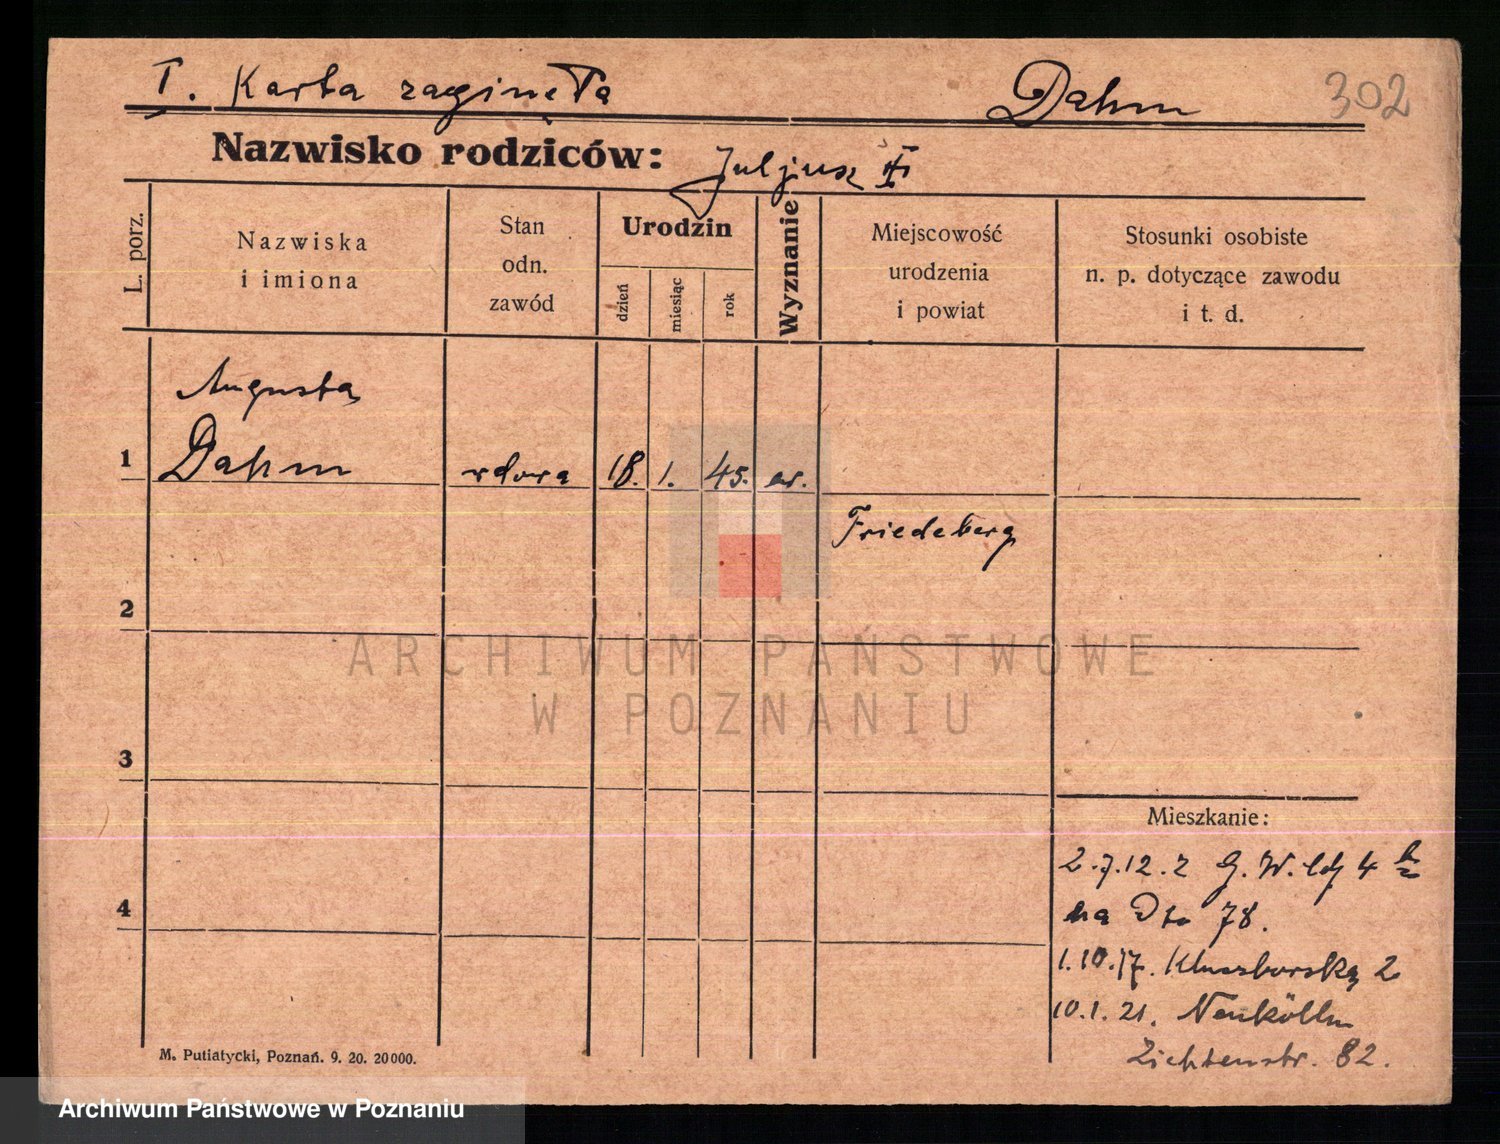 I. Karta zaginęła Dahm 302
Nazwisko rodziców: Juljusz
L. porz.
Nazwiska
i imiona
Stan
odn.
zawód
Urodzin
dzień
miesiąc
rok
Wyznanie
Miejscowość
urodzenia
i powiat
Stosunki osobiste
n. p. dotyczące zawodu
i t. d.
Augusta
1 Dahm wdowa 18. 1. 45. ew.
Friedeberg
2
ARCHIWUM PAŃSTWOWE
W POZNANIU
3
Mieszkanie:
2.7.12. z G. W. 4
na Dto 78.
4
1.10.17. Kluczborska 2
10.1.21. Neukölln
M. Putiatycki, Poznań. 9. 20. 20000.
82.
Archiwum Państwowe w Poznaniu